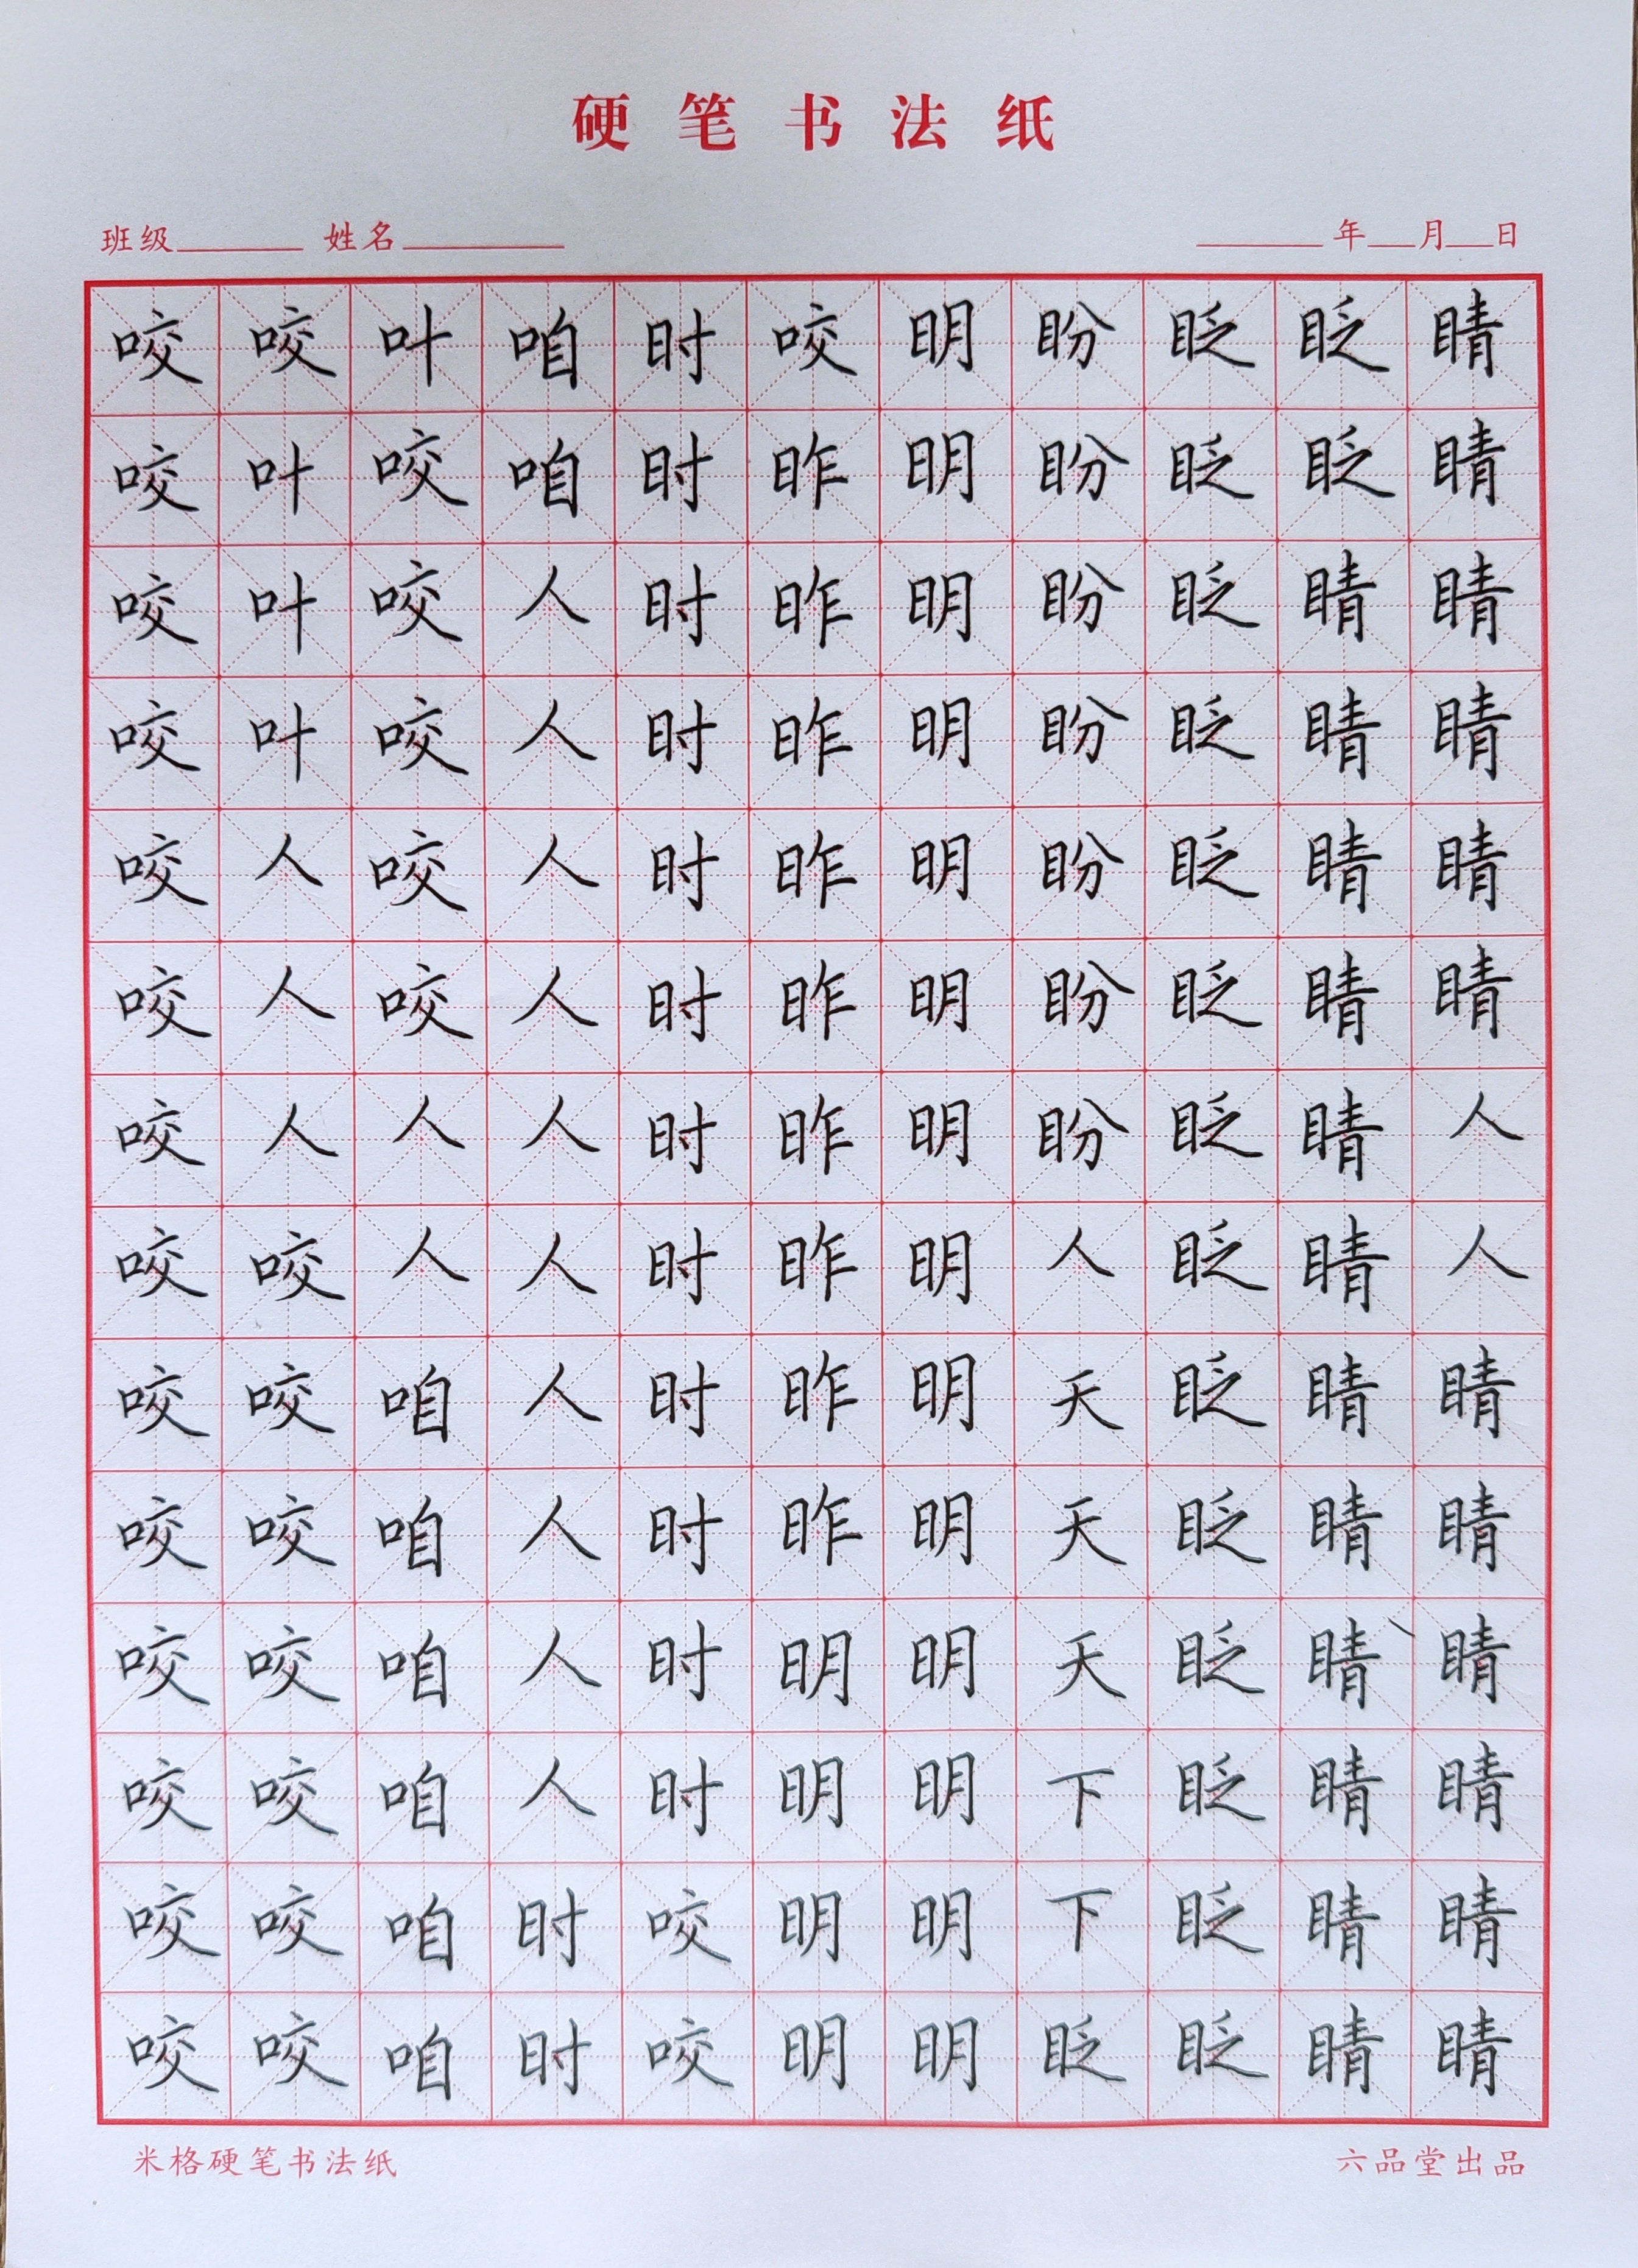 硬笔书法纸
班级 姓名 年 月 日
咬咬叶咱时咬明盼眨眨睛
咬叶咬咱时昨明盼眨眨睛
咬叶咬人时昨明盼眨睛睛
咬叶咬人时昨明盼眨睛睛
咬人咬人时昨明盼眨睛睛
咬人咬人时昨明盼眨睛睛
咬人人人时昨明盼眨睛人
咬咬人人时昨明人眨睛人
咬咬咱人时昨明天眨睛睛
咬咬咱人时昨明天眨睛睛
咬咬咱人时明明天眨睛睛
咬咬咱人时明明下眨睛睛
咬咬咱时咬明明下眨睛睛
咬咬咱时咬明明眨眨睛睛
米格硬笔书法纸 六品堂出品